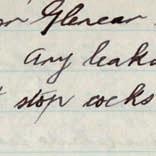 Glencar
any leaka
stop cocks